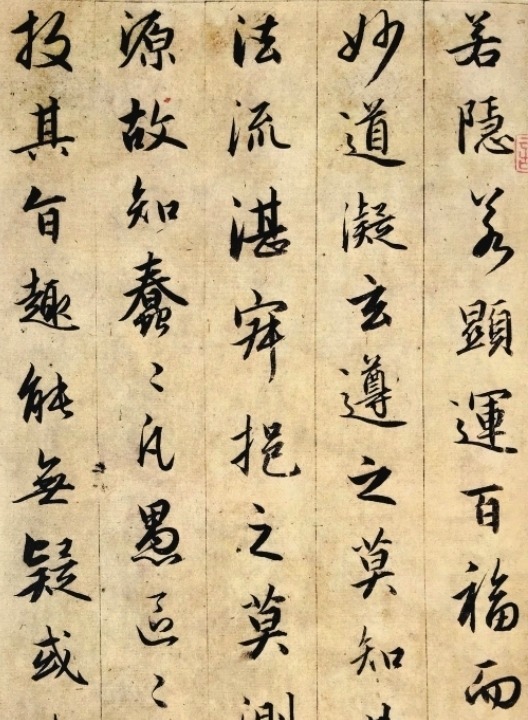 若隱若顯運百福而
妙道凝玄遵之莫知
法流湛寂挹之莫測
源故知蠢〻凡愚區〻
投其旨趣能無疑或